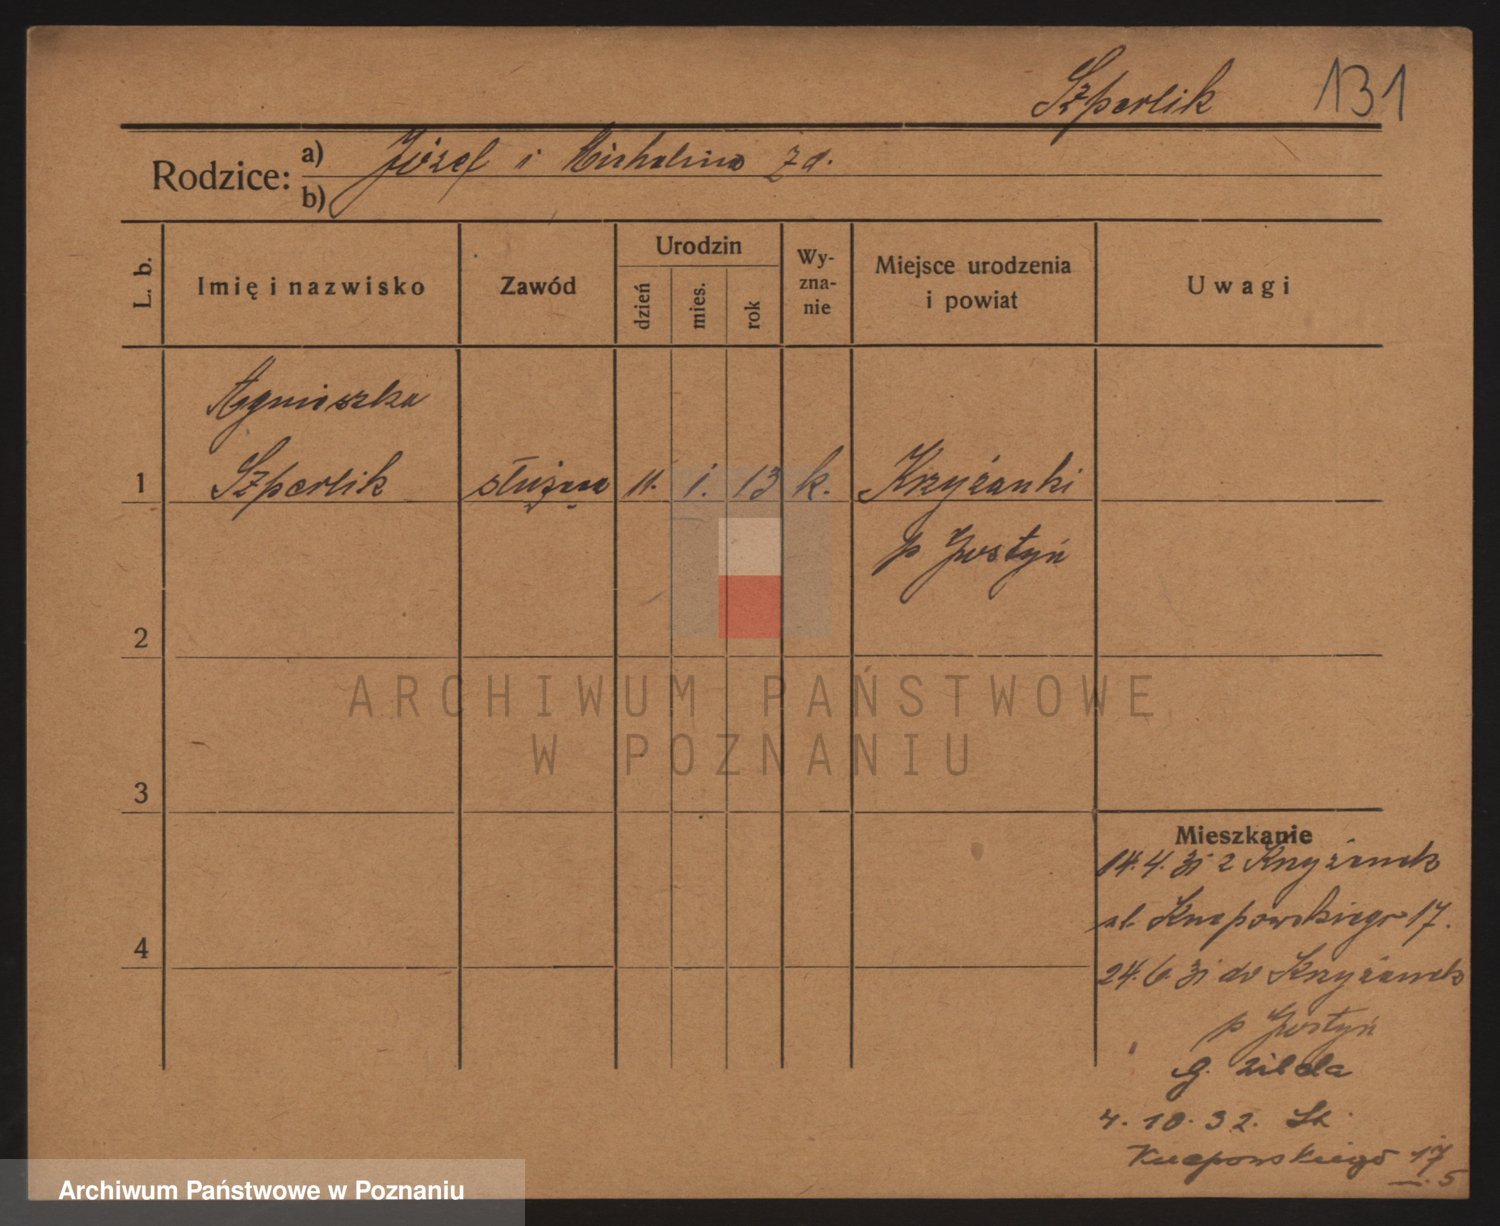 Szperlik 131
Rodzice: a) Józef i Michalina zd.
b)
L. b. Imię i nazwisko Zawód Urodzin dzień mies. rok Wy-zna-nie Miejsce urodzenia i powiat Uwagi
Agnieszka
1 Szperlik służąca 11. 1. 13 k. Krzyżanki
p Gostyń
2
ARCHIWUM PAŃSTWOWE
W POZNANIU
3
Mieszkanie
14.4.31 z Krzyżanek
ul. Knapowskiego 17.
4
24.6.31 do Krzyżanek
p Gostyń
4.10.32.
Knapowskiego 17
5
Archiwum Państwowe w Poznaniu